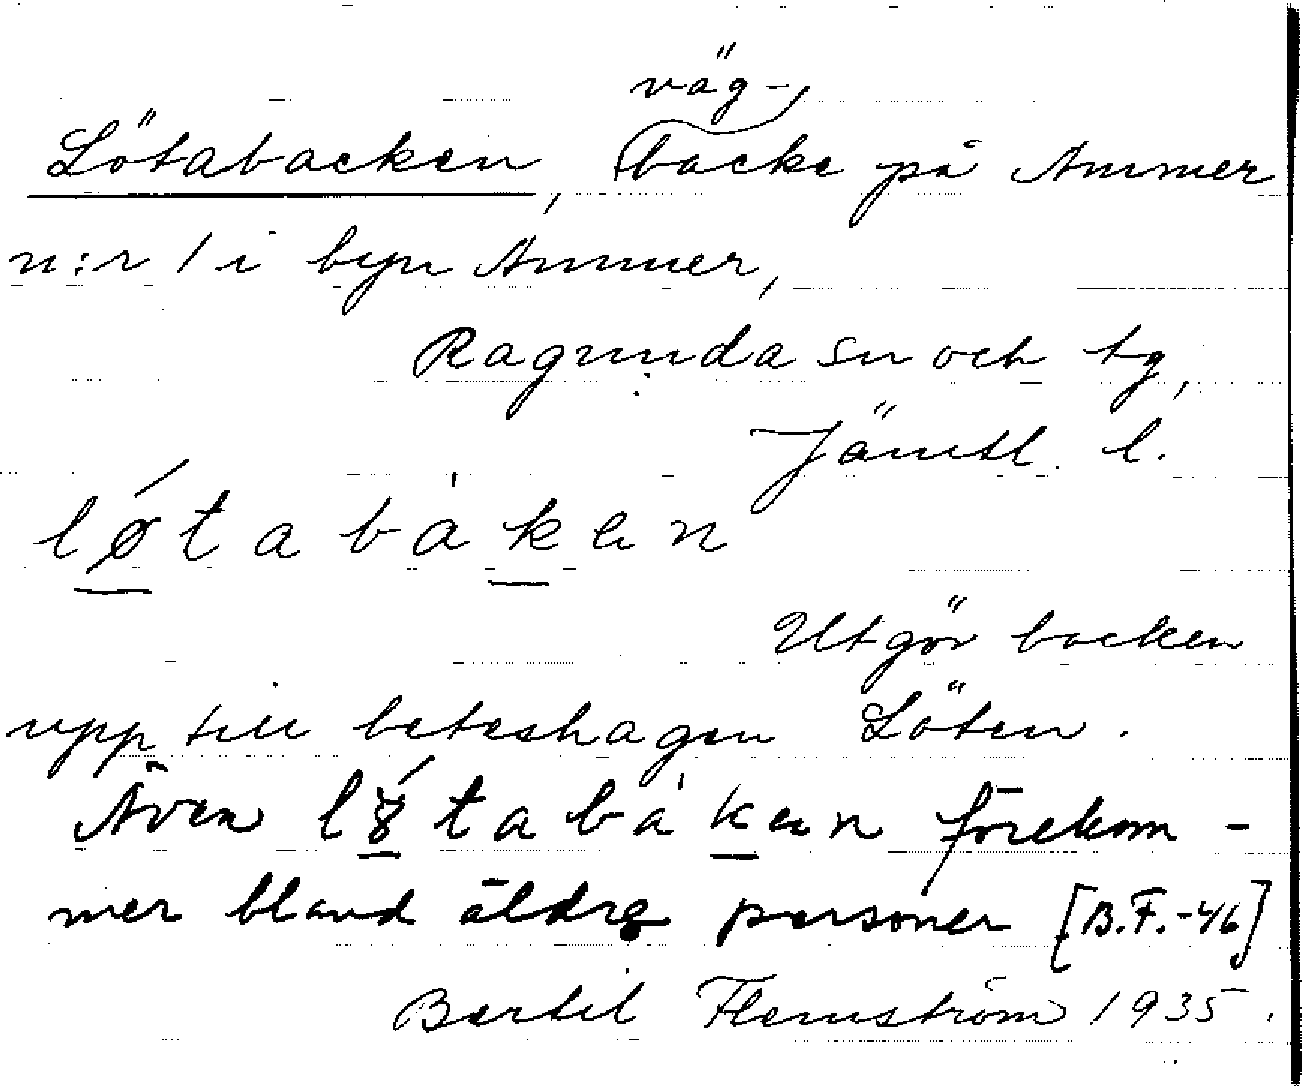 väg-
Lötabacken, backe på Ammer
n:r 1 i byn Ammer,
Ragunda sn och tg,
Jämtl. l.
lǿtabàken
Utgör backen
upp till beteshagen Löten.
Även l tabàken förekom-
mer bland äldre personer [B.F.-46]
Bertil Flemström 1935.